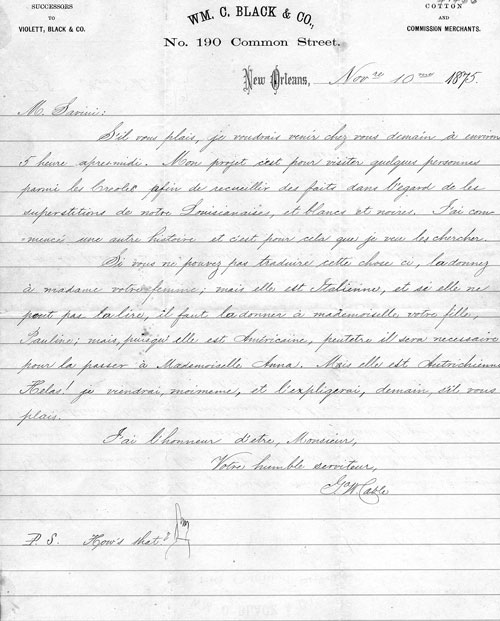 SUCCESSORS
TO
VIOLETT, BLACK & CO.
WM. C. BLACK & CO.,
COTTON
AND
COMMISSION MERCHANTS.
No. 190 Common Street.
New Orleans, Novre 10me 1875.
M. Savini:
S'il vous plais, je voudrais venir chez vous demain à environ
5 heure apres midi. Mon projet c'est pour visiter quelques personnes
parmi les Creoles afin de recueillir des faits dans l'egard de les
superstitions de notre Louisianaises, et blancs et noires. J'ai com-
-mencé une autre histoire et c'est pour cela que je veu les chercher.
Si vous ne pouvez pas traduire cette chose ci, la donnez
à madame votre femme; mais elle est Italienne, et si elle ne
peut pas la lire, il faut la donner à mademoiselle votre fille,
Pauline; mais, puisqu'elle est Américaine, peutetre il sera necessaire
pour la passer à Mademoiselle Anna. Mais elle est Autrichienne
Helas! je viendrai, moimeme, et l'expligerai, demain, s'il vous
plais.
J'ai l'honneur d'etre, Monsieur,
Votre humble serviteur,
G W Cable
P. S. How's that?